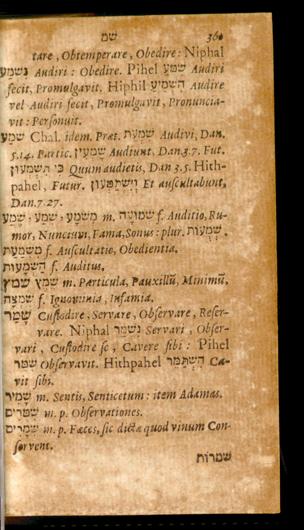 שמ 360
tare, Obtemperare, Obedire: Niphal
נִשְׁמַע Audiri: Obedire. Pihel שִׁמַּע Audiri
fecit, Promulgavit. Hiphil הִשְׁמִיעַ Audire
vel Audiri fecit, Promulgavit, Pronuncia-
vit: Personuit.
שְׁמַע Chal. idem. Præt. שִׁמְעֵת Audivi, Dan.
5.14. Partic. שָׁמְעִין Audiunt, Dan.3.7. Fut.
כִּי תִשְׁמְעוּן Quum audietis, Dan 3.5. Hith-
pahel, Futur. וְיִשְׁתַּמְּעוּן Et auscultabunt,
Dan.7.27.
שֵׁמַע, שֹׁמַע, מִשְׁמָע m. שְׁמוּעָה f. Auditio, Ru-
mor, Nuncium, Fama, Sonus: plur. שְׁמֻעוֹת,
מִשְׁמַעַת f. Auscultatio, Obedientia.
הַשְׁמָעוּת f. Auditus,
שמץ שֶׁמֶץ m. Particula, Pauxillū, Minimū,
שִׁמְצָה f. Ignominia, Infamia.
שָׁמַר Custodire, Servare, Observare, Reser-
vare. Niphal נִשְׁמַר Servari, Obser-
vari, Custodire se, Cavere sibi: Pihel
שִׁמֵּר Observavit. Hithpahel הִשְׁתַּמֵּר Ca-
vit sibi.
שָׁמִיר m. Sentis, Senticetum: item Adamas.
שִׁמֻּרִים m. p. Observationes.
שְׁמָרִים m. p. Fæces, sic dictæ quod vinum Con-
servent.
שמרות